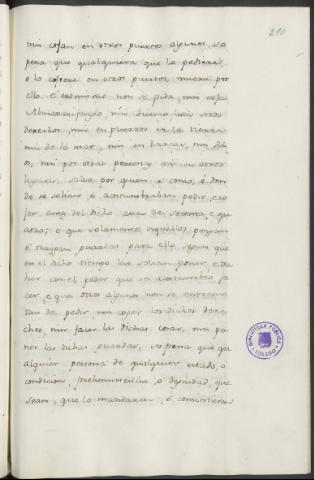 210
nin cojan en otros puertos algunos, so
pena que qualquiera que la pediere,
o lo cojere en otros puertos, muera por
ello. E eso mismo non se pida, nin coja
Almoxarifazgo, nin diezmo, nin otros
derechos, nin en puertos en la tierra
nin de la mar, nin en barcas, nin
nin por otras personas, nin en otros
lugares, salvo por quien, e como, e don
de se solian, e acostumbraban pedir, e co
jer antes del dicho anno de sesenta, e qua
tro; e que solamente aquellos pongan
e tengan guardas para ello, segun que
en el dicho tiempo las solian poner, e ta
ner con el poder que se acostumbró fa
cer, e que otros algunos non se entreme
tan de pedir nin cojer los dichos dere
chos, nin facer las dichas cosas, nin po
ner las dichas guardas, so pena que qu
alquier persona de qualquier estado, o
condicion, preheminencia, o dignidad, que
sean, que lo mandaren, ó cometieren
BIBLIOTECA PUBLICA
TOLEDO